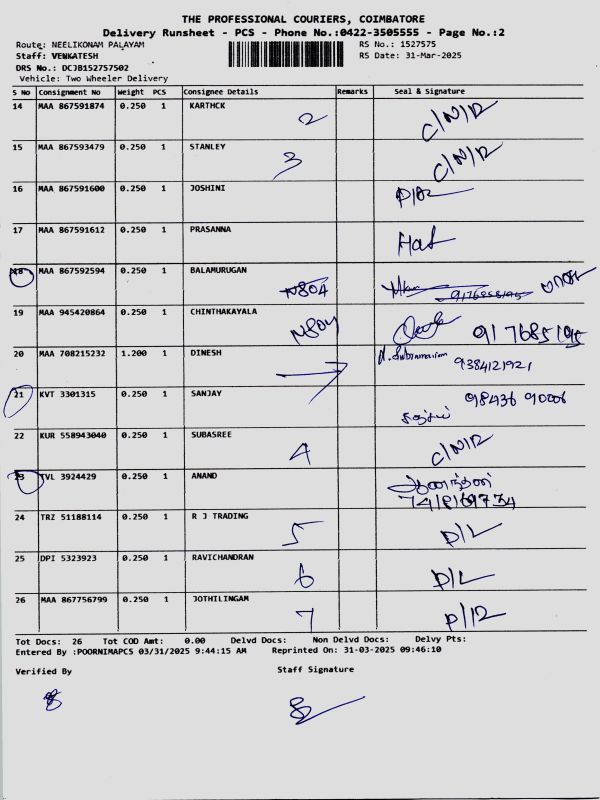 THE PROFESSIONAL COURIERS, COIMBATORE
Delivery Runsheet - PCS - Phone No.:0422-3505555 - Page No.:2
Route: NEELIKONAM PALAYAM RS No.: 1527575
Staff: VENKATESH RS Date: 31-Mar-2025
DRS No.: DCJB152757502
Vehicle: Two Wheeler Delivery
S No Consignment No Weight PCS Consignee Details Remarks Seal & Signature
14 MAA 867591874 0.250 1 KARTHCK 2 C/N/R
15 MAA 867593479 0.250 1 STANLEY 3 C/N/R
16 MAA 867591600 0.250 1 JOSHINI
17 MAA 867591612 0.250 1 PRASANNA
18 MAA 867592594 0.250 1 BALAMURUGAN N804
19 MAA 945420864 0.250 1 CHINTHAKAYALA N804 917685195
20 MAA 708215232 1.200 1 DINESH 9384121921
21 KVT 3301315 0.250 1 SANJAY 98436 90006
22 KUR 558943040 0.250 1 SUBASREE 4 C/N/R
23 TVL 3924429 0.250 1 ANAND
24 TRZ 51188114 0.250 1 R J TRADING 5 D/L
25 DPI 5323923 0.250 1 RAVICHANDRAN 6 D/L
26 MAA 867756799 0.250 1 JOTHILINGAM 7
Tot Docs: 26 Tot COD Amt: 0.00 Delvd Docs: Non Delvd Docs: Delvy Pts:
Entered By :POORNIMAPCS 03/31/2025 9:44:15 AM Reprinted On: 31-03-2025 09:46:10
Verified By Staff Signature